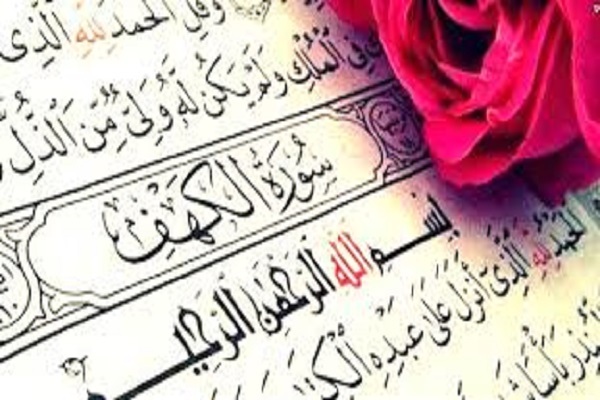 وَقُلِ الْحَمْدُ لِلَّهِ الَّذِي
فِي الْمُلْكِ وَلَمْ يَكُن لَّهُ وَلِيٌّ مِّنَ الذُّلِّ
سُورَةُ الْكَهْفِ
بِسْمِ اللَّهِ الرَّحْمَٰنِ الرَّحِيمِ
الْحَمْدُ لِلَّهِ الَّذِي أَنزَلَ عَلَىٰ عَبْدِهِ الْكِتَ
لِّيُنذِرَ بَأْسًا